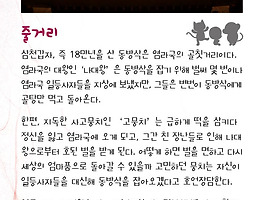 줄거리
삼천갑자, 즉 18만년을 산 동방삭은 염라국의 골칫거리이다.
염라국의 대왕인 '나대왕' 은 동방삭을 잡기 위해 벌써 몇 번이나
염라국 일등사자들을 지상에 보냈지만, 그들은 번번이 동방삭에게
골탕만 먹고 돌아온다.
한편, 지독한 사고뭉치인 '고뭉치' 는 급하게 떡을 삼키다
정신을 잃고 염라국에 오게 되고, 그간 친 장난들로 인해 나대
왕으로부터 호된 벌을 받게 된다. 어떻게 하면 벌을 면하고 다시
세상의 엄마품으로 돌아갈 수 있을까 고민하던 뭉치는 자신이
일등사자들을 대신해 동방삭을 잡아오겠다고 호언장담한다.